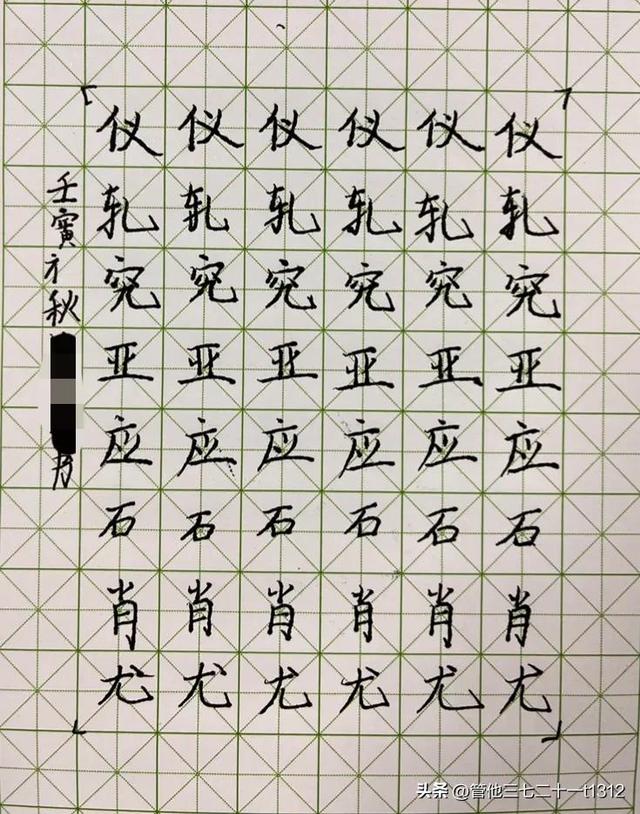 仪仪仪仪仪仪
轧轧轧轧轧轧
究究究究究究
亚亚亚亚亚亚
应应应应应应
石石石石石石
肖肖肖肖肖肖
尤尤尤尤尤尤
壬寅方秋
头条 @管他三七二十一t1312